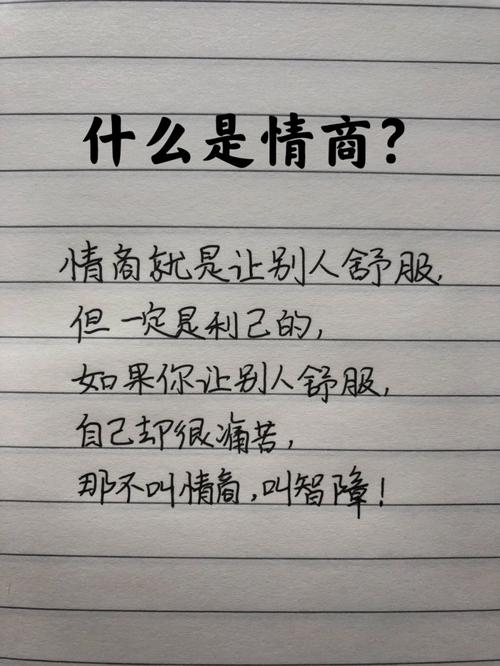 什么是情商?
情商就是让别人舒服,
但一定是利己的,
如果你让别人舒服,
自己却很痛苦,
那不叫情商,叫智障!